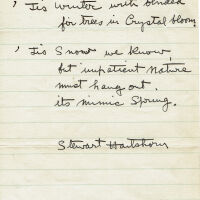 ' Tis Winter with blended
for trees in Crystal bloom,
' Tis Snow we know
but impatient Nature
must hang out.
its mimic Spring.
Stewart Hartshorn